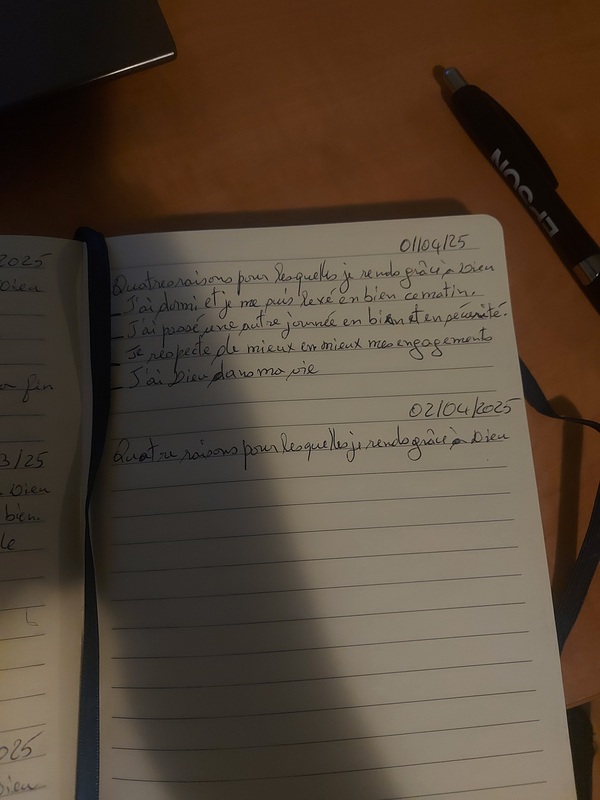 2025
Dieu
fin
3/25
Dieu
bien.
le
025
Dieu
01/04/25
Quatre raisons pour lesquelles je rends grâce à Dieu
_ J'ai dormi et je me suis levé en bien ce matin.
_ J'ai passé une autre journée en bien et en sécurité.
_ Je respecte de mieux en mieux mes engagements
_ J'ai Dieu dans ma vie
02/04/2025
Quatre raisons pour lesquelles je rends grâce à Dieu
EPSON